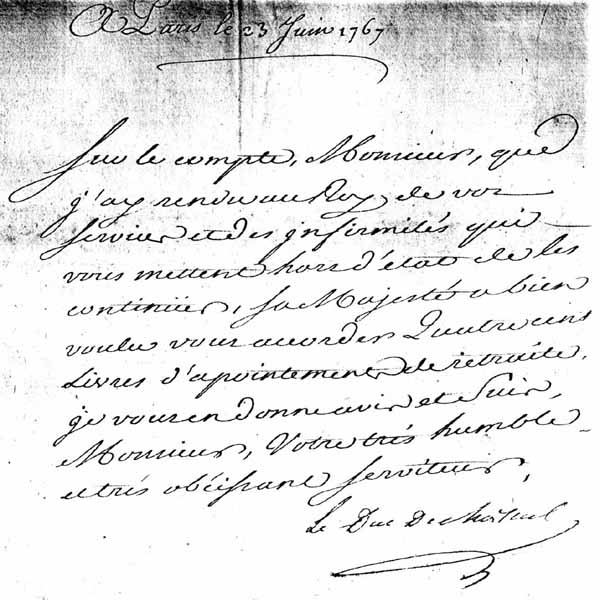 A Paris le 23 Juin 1767
Sur le compte, Monsieur, que
j'ay rendu au Roy, de vos
services et des jnfirmités qui
vous mettent hors d'état de les
continüer, sa Majesté a bien
voulu vous accorder Quatre cens
Livres d'apointements de retraite.
je vous en donne avis et suis,
Monsieur, Votre trés humble
et trés obéissant serviteur,
Le Duc De Choiseul